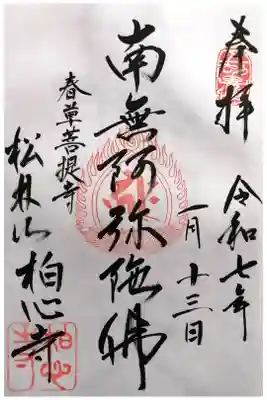 奉拝
令和七年
一月十三日
南無阿弥陀佛
春草菩提寺
松林山 柏心寺
柏心寺